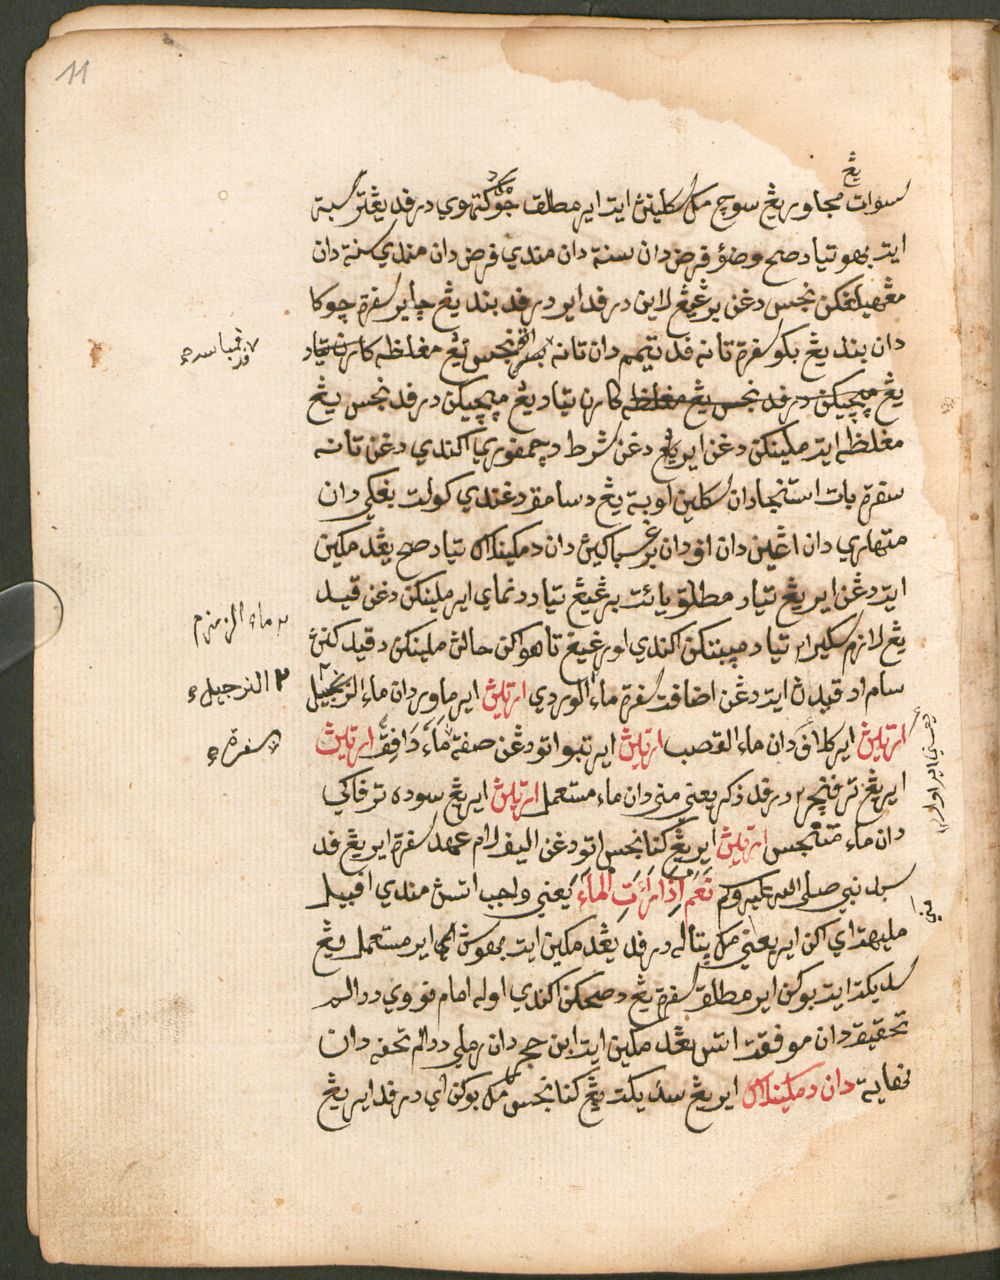 11
يڠ
سوات مجاور يڠ سوچ مك كلينن ايت اير مطلق جوك تتاوي درفد يڠترسبة
ايت بهو تياد صح وضؤ فرض دان سنة دان مندي فرض دان مندي سنة دان
مڠهيلڠكن نجس دڠن برڠيڠ لاين درفد اير درفد بند يڠ چاير سفرة چوكا
دان بند يڠ بكو سفرة تانه فد تيمم دان تانه نجس يڠ مغلظه كارن تياد
يڠ مڽوچيكن درفد نجس يڠ مغلظه كارن تياد يڠ مڽوچيكن درفد نجس يڠ
مغلظه ايت ملينكن دڠن اير يڠ دڠن شرط دچمفوري اكندي دڠن تانه
سفرة بات استنجا دان سكلين اوبة يڠ دسامق دڠندي كولت بڠكي دان
متهاري دان اڠين دان افي دان برڠ سباكين دان دمكينله تياد صح يڠد مكين
ايت دڠن اير يڠ تياد مطلق يائت برڠيڠ تياد دنماي اير ملينكن دڠن قيد
يڠ لازم سكلير٢ تياد مڽبتكن اكندي اورڠيڠ تاهو اكن حالن ملينكن دقيدكنن
سام اد قيدن ايت دڠن اضافت سفرة ماء الوردي ارتين اير ماور دان ماء الزنجبيل
ارتين اير كلاڤ دان ماء القصب ارتين اير تبو اتو دڠن صفة ماء دافق ارتين
اير يڠ ترفنچر٢ درفد ذكر يعني مني دان ماء مستعمل ارتين اير يڠ سوده ترفاكي
دان ماء متنجس ارتين اير يڠ كنا نجس اتو دڠن اليف لام عهد سفرة اير يڠ فد
سبد نبي صلى الله عليه وسلم نعم اذا رأت الماء يعني واجب اتسن مندي افبيل
مليهة اي اكن اير يعني مني مك پتاله درفد يڠد مكين ايت بهوسن اير مستعمل يڠ
سديكت ايت بوكن اير مطلق سفرة يڠ دصحكن اكندي اوله امام نووي ددالم
تحقيق دان موفقة اتس يڠد مكين ايت ابن حجر دان رملي ددالم تحفه دان
نهاية دان دمكينله اير يڠ سديكت يڠ كنا نجس مك بوكن اي درفد اير يڠ
ماء الزمزم
٢ النرجيل
سفرة